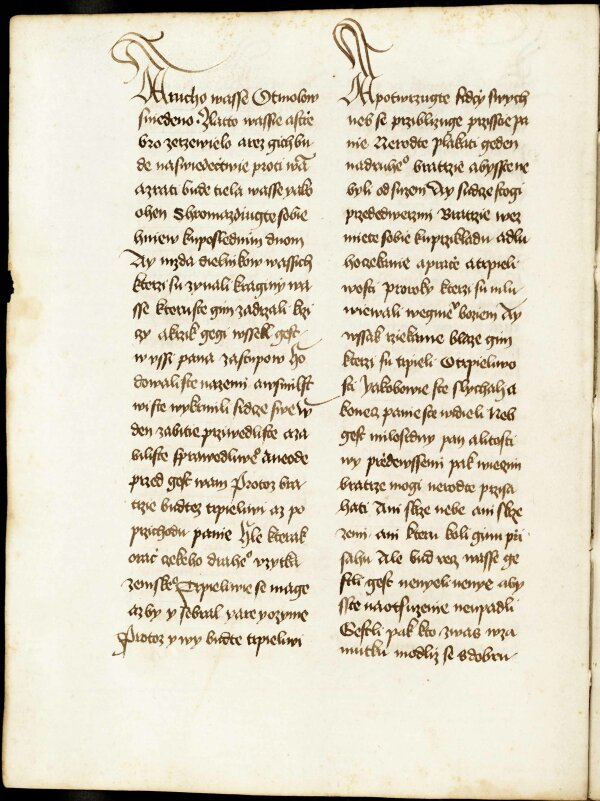 A rucho wasse Otmolow
sniedeno · Zlatto wasse astře
bro zerzewielo arez gich bu
de naswiedectwie proti wā
azrati bude tiela wasse yako
ohen Shromazdiugte sobie
hniew kuposlednim dnom
Ay mzda dielnikow wassich
kterzi su zynali kraginy wa
sse kteruste gim zadrzali krzi
czy a krzik gegi wssel gest
w ussi pana zastupow Ho
dowaliste nazemi a wsmilst
wiste wykrmili sidcze swe W
den zabitie przwedliste aza
biliste sprawedliweº aneode
przed gest wam Protoz bra
trzie budtez trpeliwi az po
przichodu panie Hle kterak
oracz czeka draheº vzytka
zemskeº Trpieliwie se mage
azby y sebral yare y ozyme
Protoz y wy budte trpeliwi
A potwrzugte srdcy swych
neb se przibliuge przisstie pa
nie Nerodte plakati geden
nadruheº bratrzie abysste ne
byli odsuzeni Ay sudze stogi
przededwerzmi Bratrzie wez
miete sobie kuprzikladu adlu
hoczekanie aprace atrpieli
wosti Proroky kterzi su mlu
wiewali wegmeº boziem Ay
wssak rziekame blaze gim
kterzi su trpieli Otrpieliwo
sti Yakobowie ste slychali a
konecz panie ste widieli Neb
gest milostiwy pan alitosti
wy przedewssemi pak wiecmi
bratrze mogi nerodte przisa
hati Ani skrze nebe ani skrze
zemi ani kteru koli ginu pri
sahu Ale bud rzecz wasse ge
stli gest nenyeli nenye aby
sste naotsuzenie neupadli
Gestli pak kto zwas wza
mutku modliz se sdobru